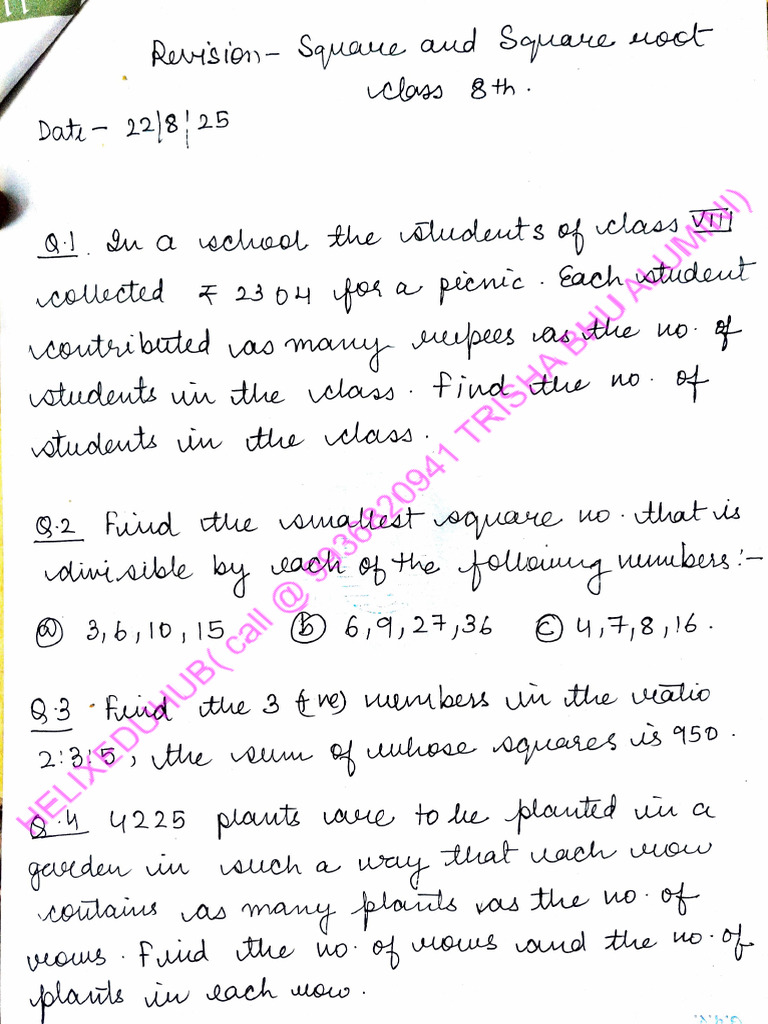 Revision - Square and Square root
class 8th.
Date - 22/8/25
Q.1. In a school the students of class VIII
collected ₹ 2304 for a picnic. Each student
contributed as many rupees as the no. of
students in the class. Find the no. of
students in the class.
Q.2 Find the smallest square no. that is
divisible by each of the following numbers:-
(a) 3, 6, 10, 15 (b) 6, 9, 27, 36 (c) 4, 7, 8, 16.
Q.3 Find the 3 (+ve) numbers in the ratio
2:3:5, the sum of whose squares is 950.
Q.4 4225 plants are to be planted in a
garden in such a way that each row
contains as many plants as the no. of
rows. Find the no. of rows and the no. of
plants in each row.
HELIXEDUHUB( call @ 9936820941 TRISHA BHU ALUMINI)